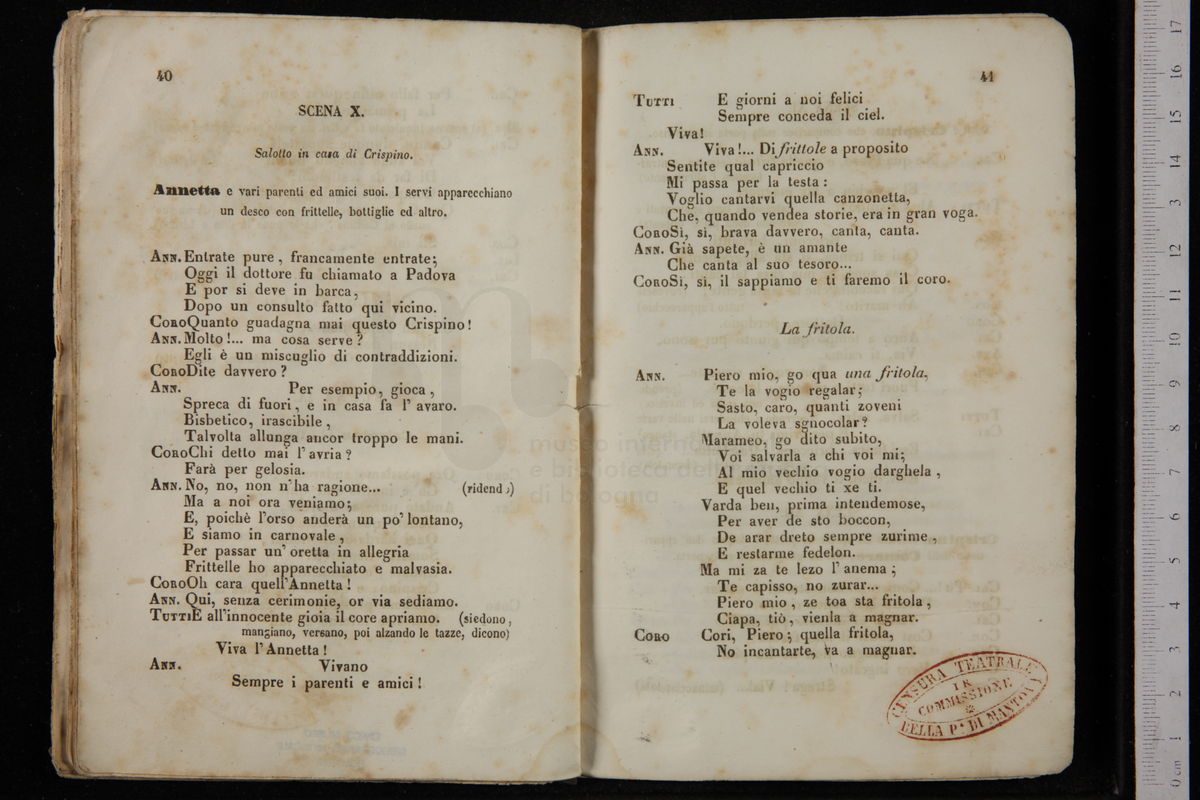 40
SCENA X.
Salotto in casa di Crispino.
Annetta e vari parenti ed amici suoi. I servi apparecchiano
un desco con frittelle, bottiglie ed altro.
Ann. Entrate pure, francamente entrate;
Oggi il dottore fu chiamato a Padova
E por si deve in barca,
Dopo un consulto fatto qui vicino.
Coro Quanto guadagna mai questo Crispino!
Ann. Molto!... ma cosa serve?
Egli è un miscuglio di contraddizioni.
Coro Dite davvero?
Ann. Per esempio, gioca,
Spreca di fuori, e in casa fa l'avaro.
Bisbetico, irascibile,
Talvolta allunga ancor troppo le mani.
Coro Chi detto mai l'avria?
Farà per gelosia.
Ann. No, no, non n'ha ragione... (ridendo)
Ma a noi ora veniamo;
E, poichè l'orso anderà un po' lontano,
E siamo in carnovale,
Per passar un' oretta in allegria
Frittelle ho apparecchiato e malvasia.
Coro Oh cara quell'Annetta!
Ann. Qui, senza cerimonie, or via sediamo.
Tutti E all'innocente gioia il core apriamo. (siedono,
mangiano, versano, poi alzando le tazze, dicono)
Viva l'Annetta!
Ann. Vivano
Sempre i parenti e amici!
41
Tutti E giorni a noi felici
Sempre conceda il ciel.
Viva!
Ann. Viva!... Di frittole a proposito
Sentite qual capriccio
Mi passa per la testa:
Voglio cantarvi quella canzonetta,
Che, quando vendea storie, era in gran voga.
Coro Sì, sì, brava davvero, canta, canta.
Ann. Già sapete, è un amante
Che canta al suo tesoro...
Coro Sì, sì, il sappiamo e ti faremo il coro.
La fritola.
Ann. Piero mio, go qua una fritola,
Te la vogio regalar;
Sasto, caro, quanti zoveni
La voleva sgnocolar?
Marameo, go dito subito,
Voi salvarla a chi voi mi;
Al mio vechio vogio darghela,
E quel vechio ti xe ti.
Varda ben, prima intendemose,
Per aver de sto boccon,
De arar dreto sempre zurime,
E restarme fedelon.
Ma mi za te lezo l'anema;
Te capisso, no zurar...
Piero mio, ze toa sta fritola,
Ciapa, tiò, vienla a magnar.
Coro Cori, Piero; quella fritola,
No incantarte, va a magnar.
CENSURA TEATRALE
I R
COMMISSIONE
DELLA P.A DI MANTOVA
museo
e biblioteca della
di bologna